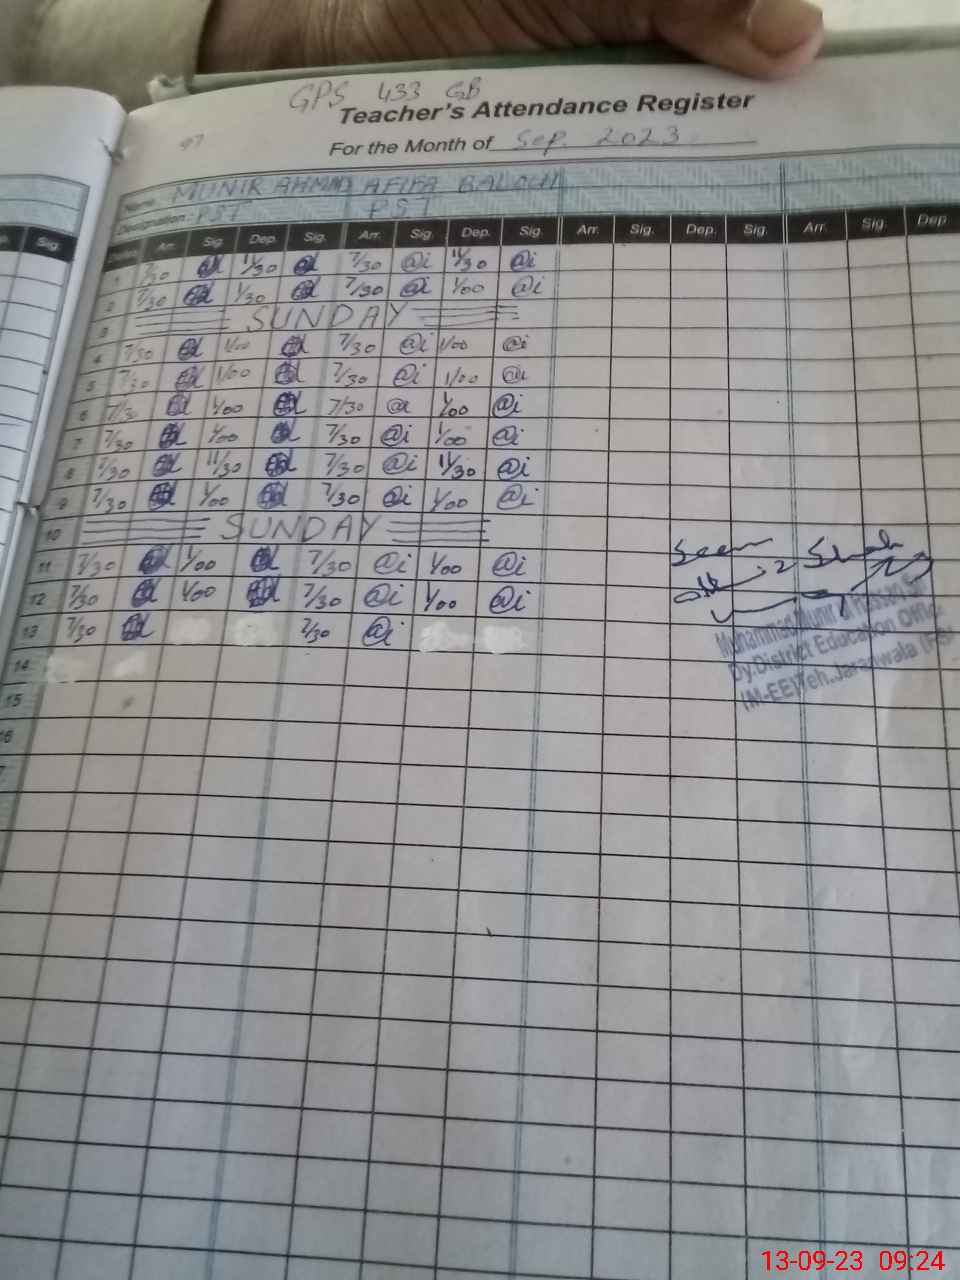 GPS 433 GB
Teacher's Attendance Register
For the Month of Sep. 2023
Name: MUNIR AHMAD AFIFA BALOCH
Designation: PST PST
Sig. Dates Arr. Sig. Dep. Sig. Arr. Sig. Dep. Sig. Arr. Sig. Dep. Sig. Arr. Sig. Dep.
1 7/30 11/30 7/30 @i 11/30 @i
2 7/30 1/30 7/30 @i 1/00 @i
3 SUNDAY
4 7/30 1/00 7/30 @i 1/00 @i
5 7/30 1/00 7/30 @i 1/00 @i
6 7/30 1/00 7/30 @i 1/00 @i
7 7/30 1/00 7/30 @i 1/00 @i
8 7/30 11/30 7/30 @i 11/30 @i
9 7/30 1/00 7/30 @i 1/00 @i
10 SUNDAY
11 7/30 1/00 7/30 @i 1/00 @i
12 7/30 1/00 7/30 @i 1/00 @i
13 7/30 7/30 @i
14
15
Seen
Muhammad Munir
Dy.District Education Officer
(M-EE)Teh.Jaranwala
13-09-23 09:24